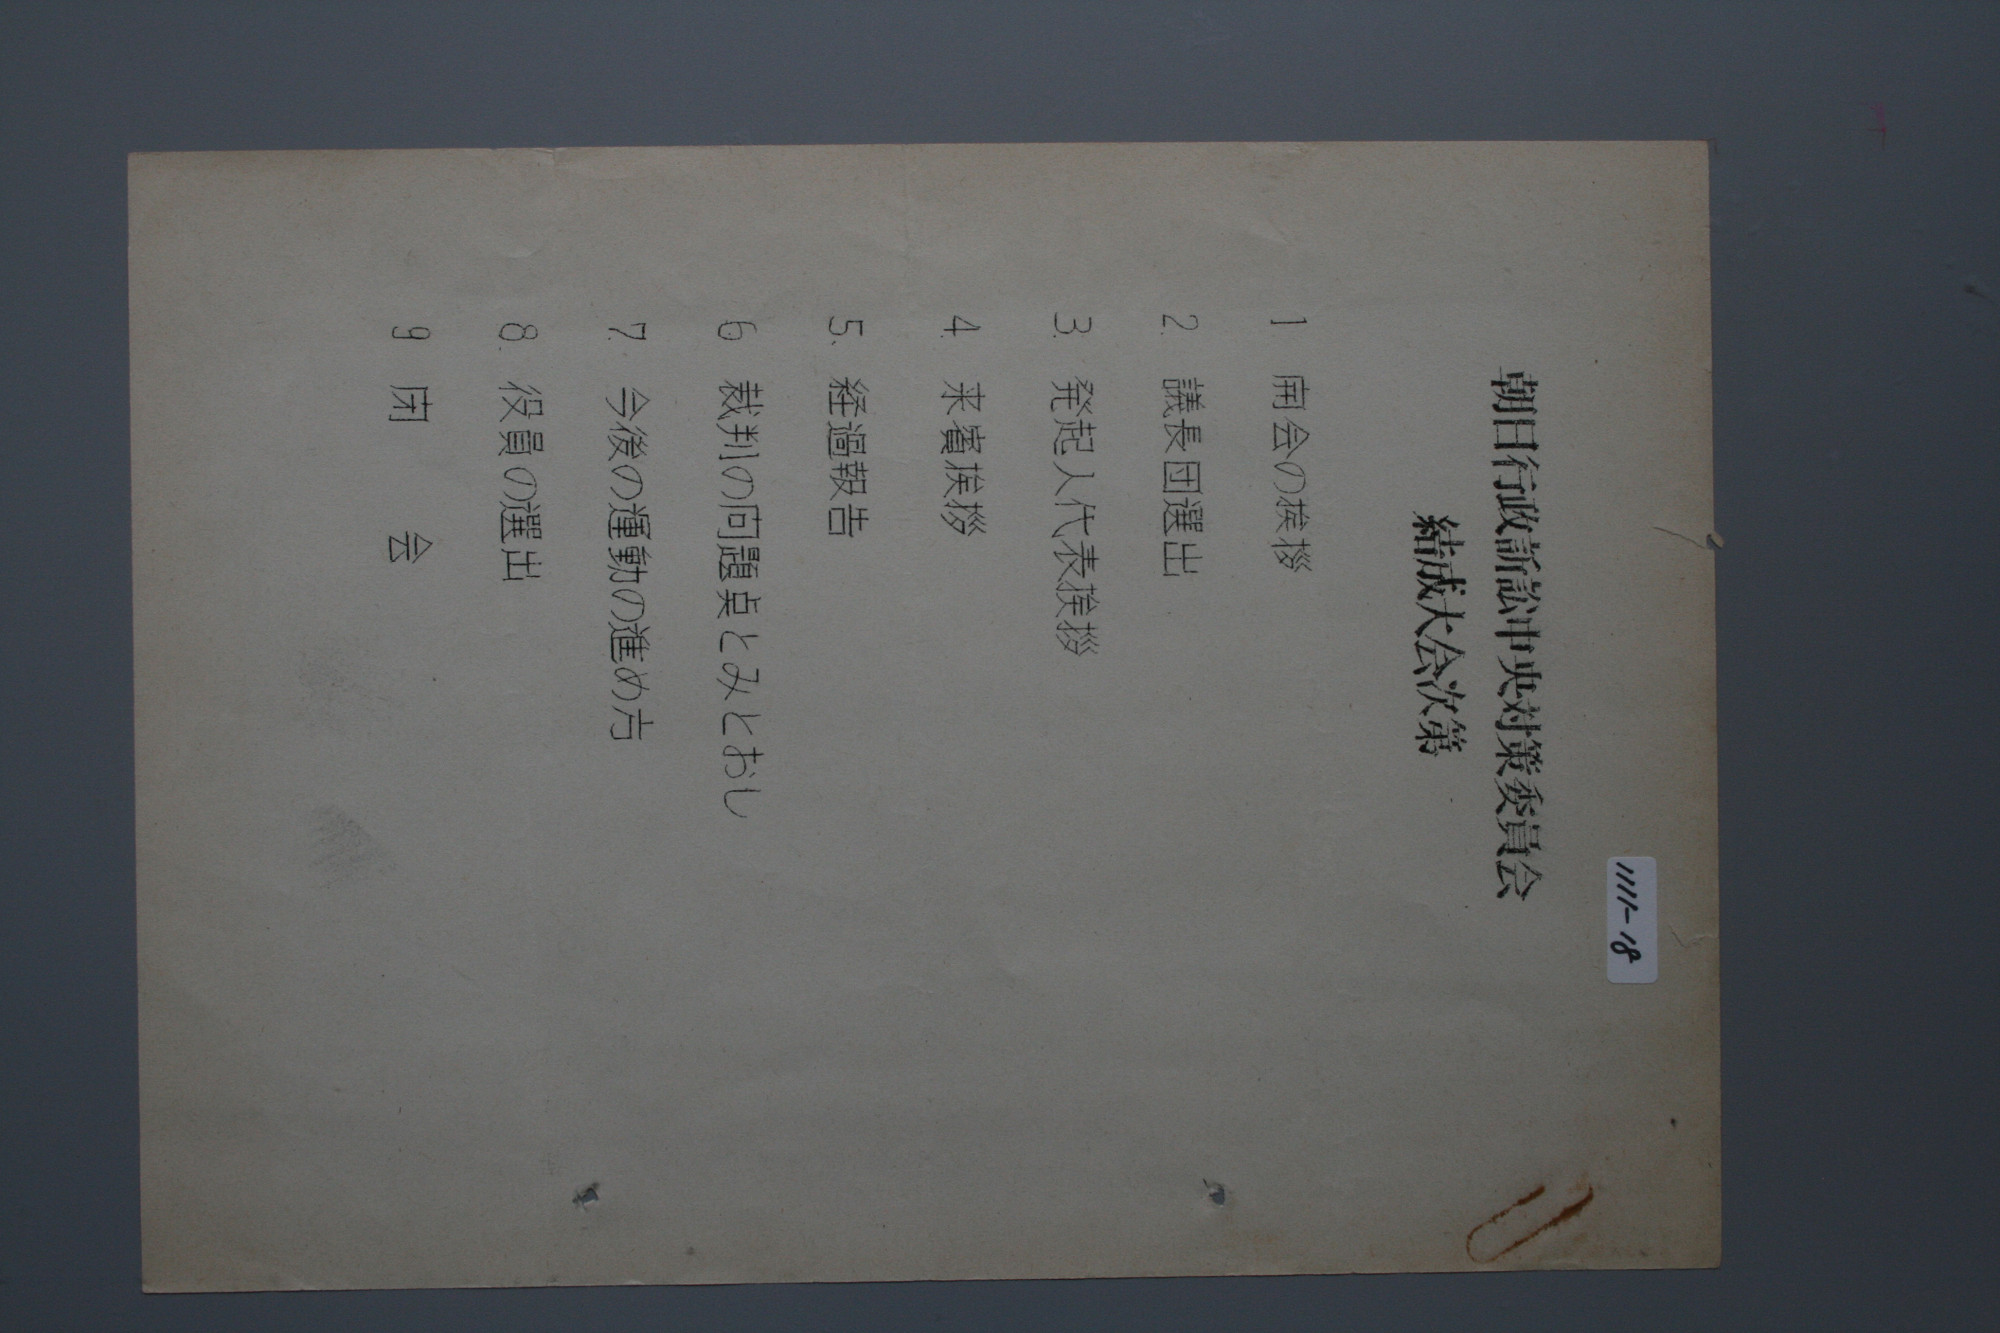 1111-18
朝日行政訴訟中央対策委員会
結成大会次第
1 開会の挨拶
2. 議長団選出
3. 発起人代表挨拶
4. 来賓挨拶
5. 経過報告
6 裁判の問題点とみとおし
7. 今後の運動の進め方
8. 役員の選出
9 閉会